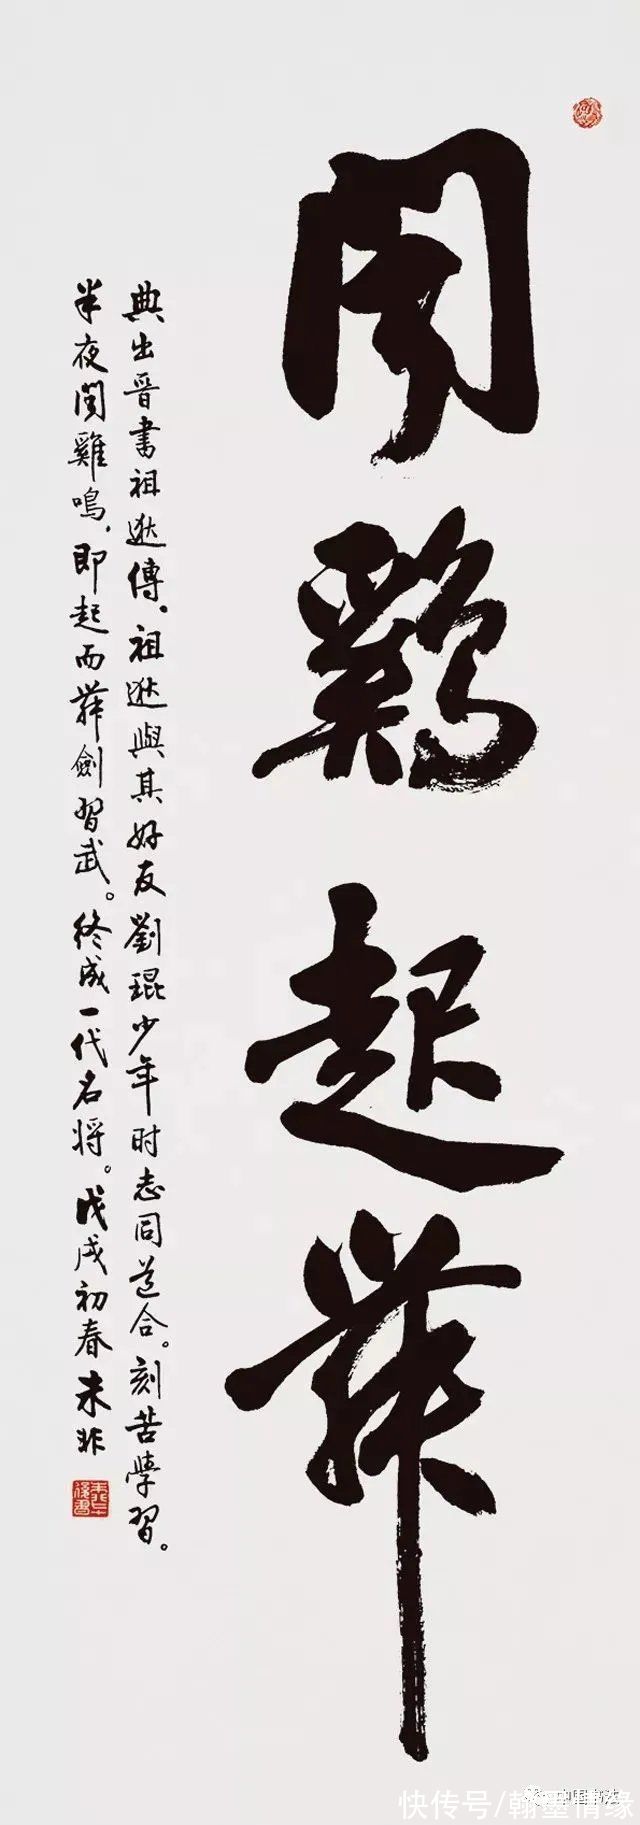 闻鷄起舞
典出晋書祖逖傳，祖逖與其好友劉琨少年时志同道合。刻苦學習。
半夜闻雞鳴，即起而舞劍習武。终成一代名将。戊戌初春未非
快传号/翰墨情缘
中国书法